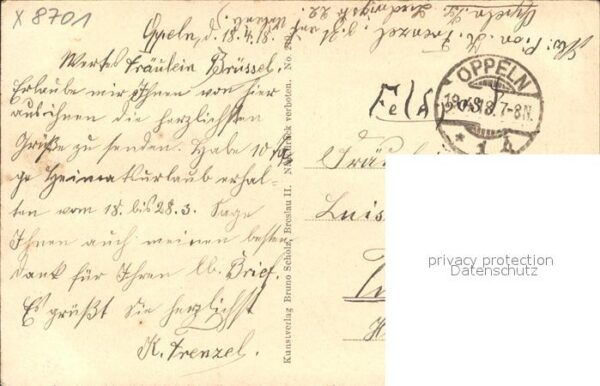 X 8701
Oppeln, d. 18.4.18.
Wertes Fräulein Brüssel.
Erlaube mir Ihnen von hier
aus ihnen die herzlichsten
Grüße zu senden. Habe 10 tä-
ge Heimaturlaub erhal-
ten vom 18. bis 28.3. Sage
Ihnen auch meinen besten
Dank für Ihren lb. Brief.
Es grüßt Sie herzlichst
K. Trenzel.
Kunstverlag Bruno Scholz, Breslau II. Nachdruck verboten. No.
K. Trenzel
Oppeln
Feldpost
OPPELN
7-8N.
* 1 h
Fräu
Luis
privacy protection
Datenschutz